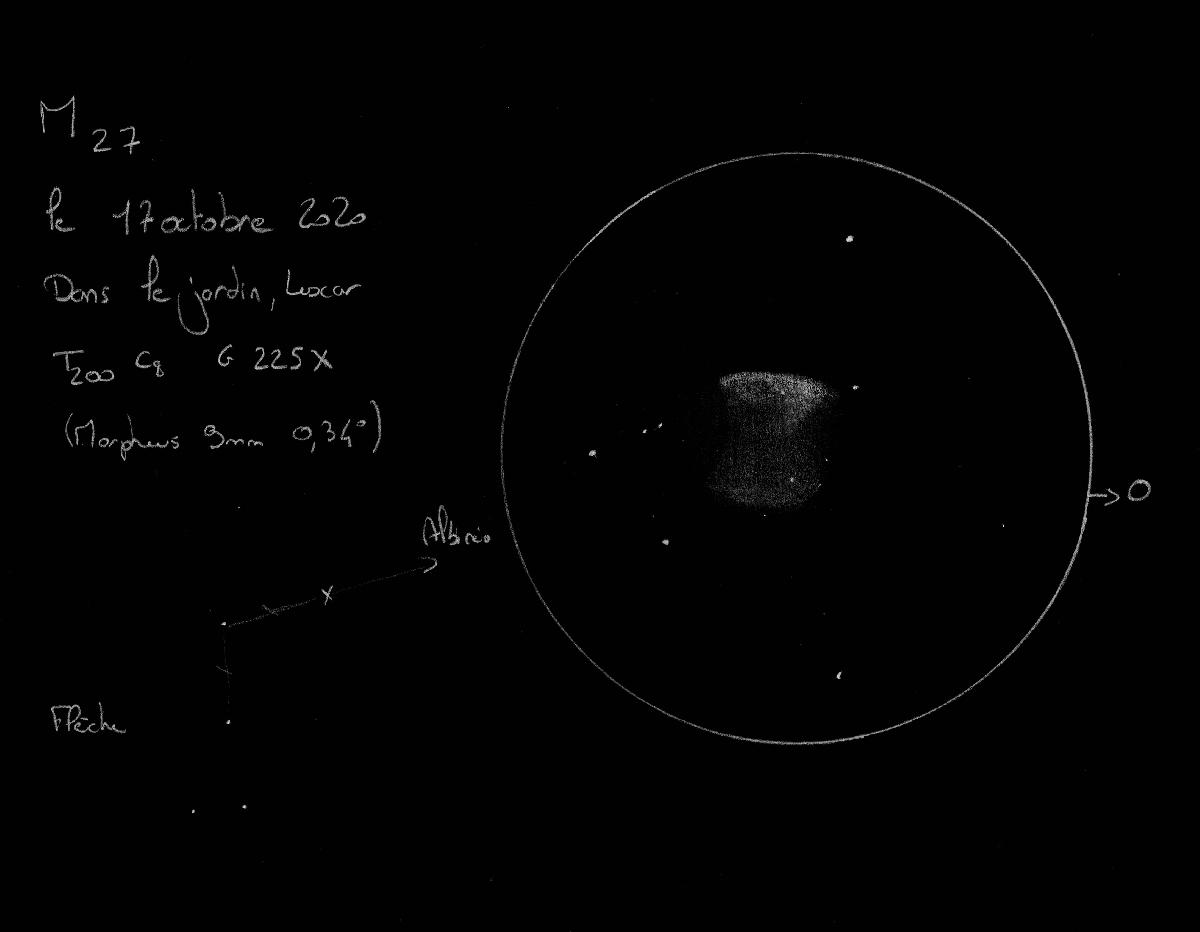 M 27
le 17 octobre 2020
Dans le jardin, Luscar
T200 C8 G 225X
(Morpheus 9mm 0,34°)
Albiréo
→ O
Flèche